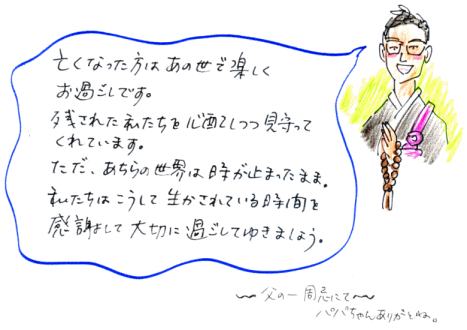 亡くなった方は あの世で楽しく
お過ごしです。
残された私たちを心配しつつ見守って
くれています。
ただ、あちらの世界は時が止まったまま。
私たちはこうして生かされている時間を
感謝して大切に過ごしてゆきましょう。
〜父の一周忌にて〜
パパちゃんありがとね。